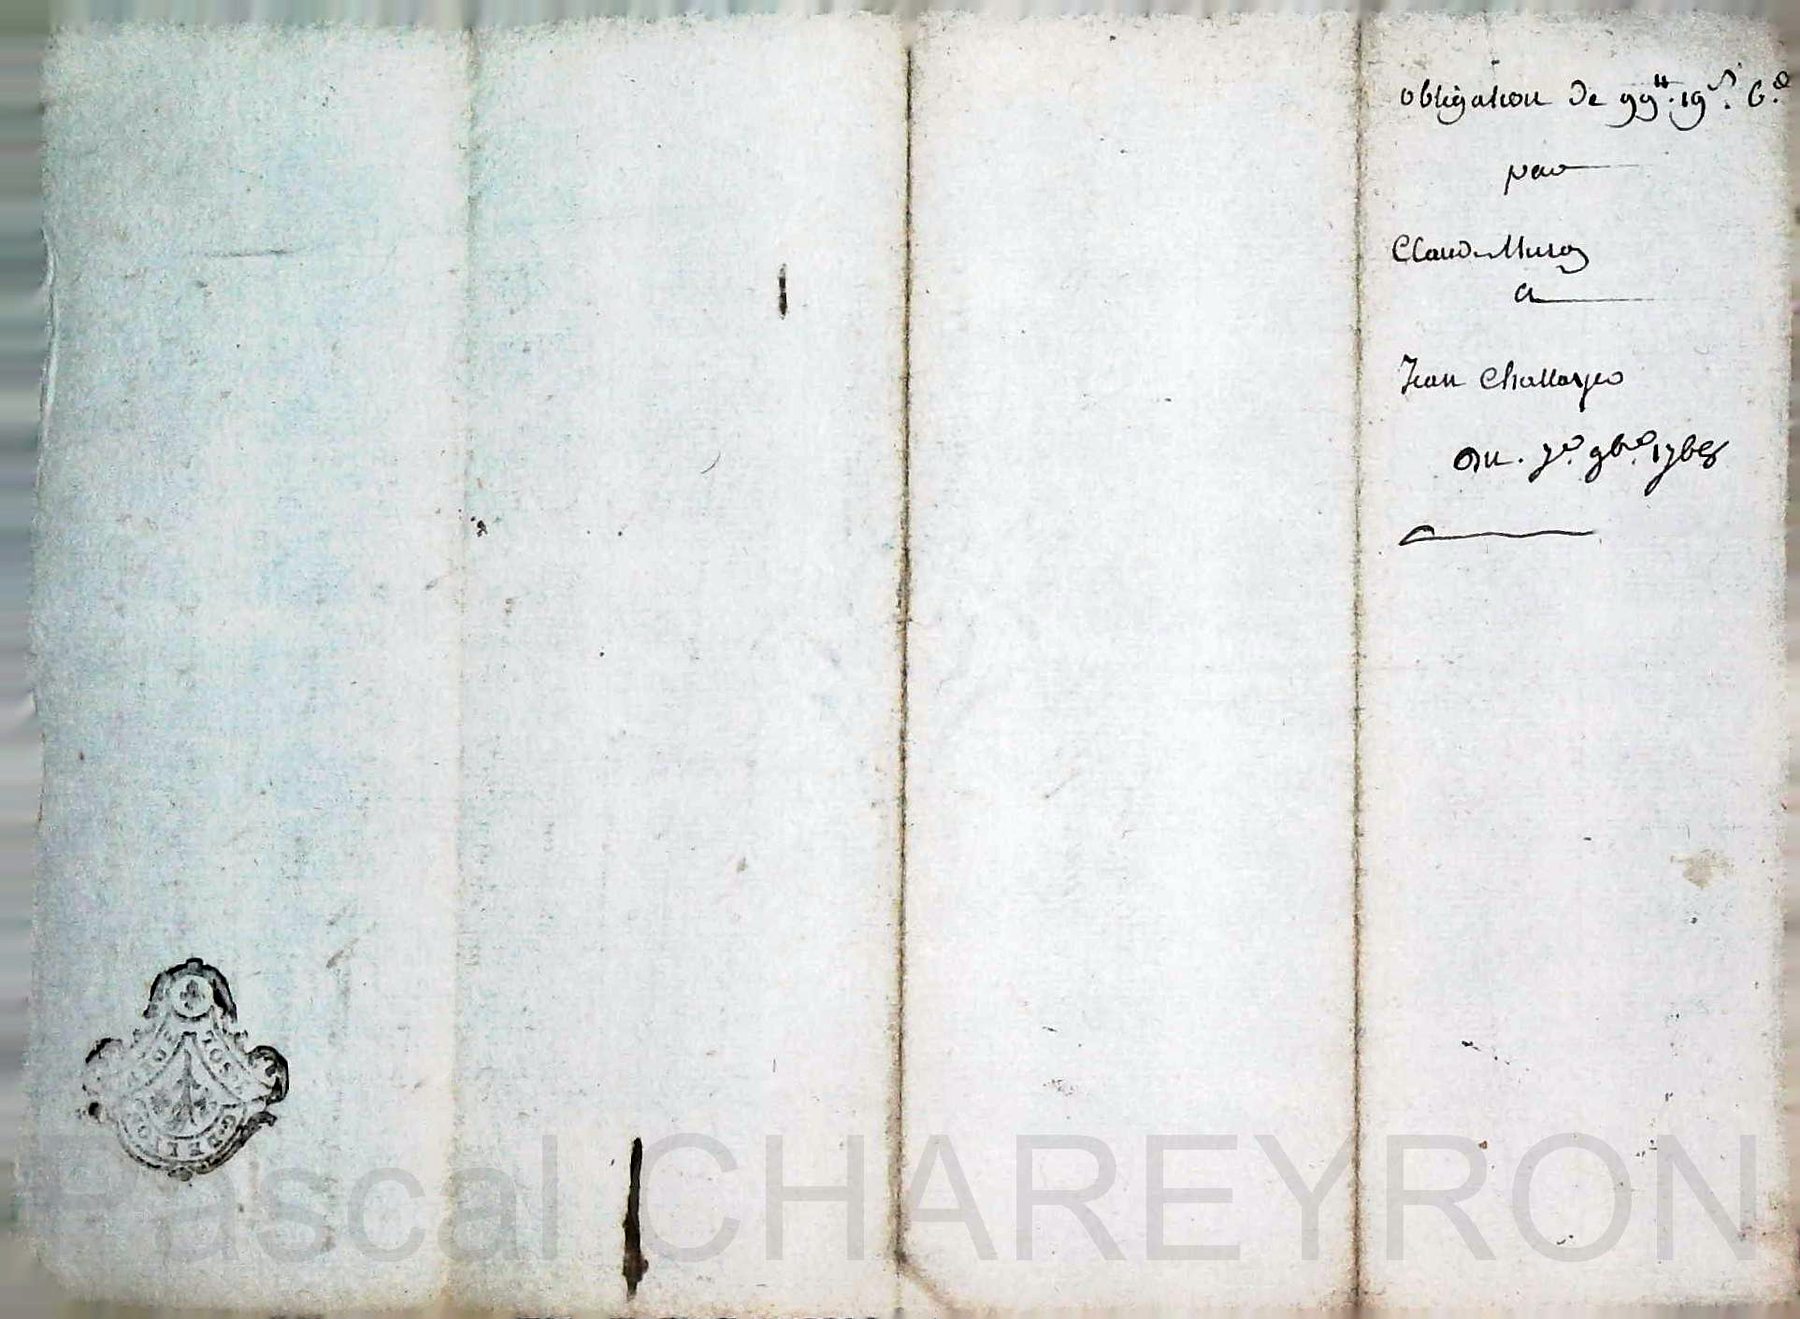 obligation de 99ᵗᵗ. 19ˢ. 6.ᵈ
par
Claude Muroy
a
Jean Challaye
Du. 7ᵉ. 9bʳᵉ. 1768
Pascal CHAREYRON